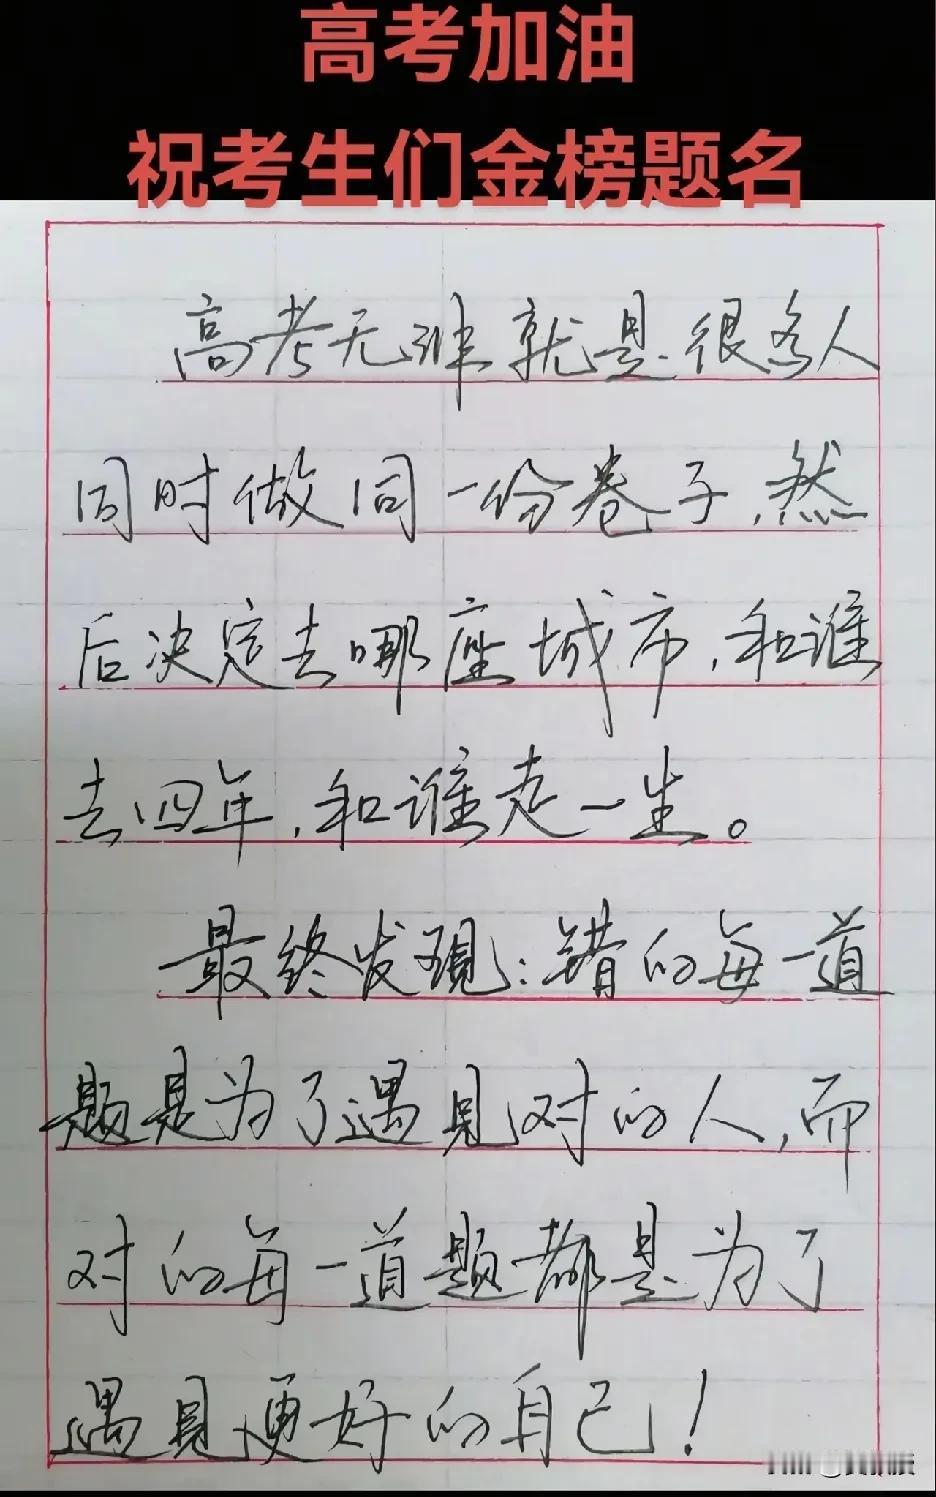 高考加油
祝考生们金榜题名
高考无非就是很多人
同时做同一份卷子,然
后决定去哪座城市,和谁
去四年,和谁走一生。
最终发现:错的每一道
题是为了遇见对的人,而
对的每一道题都是为了
遇见更好的自己!